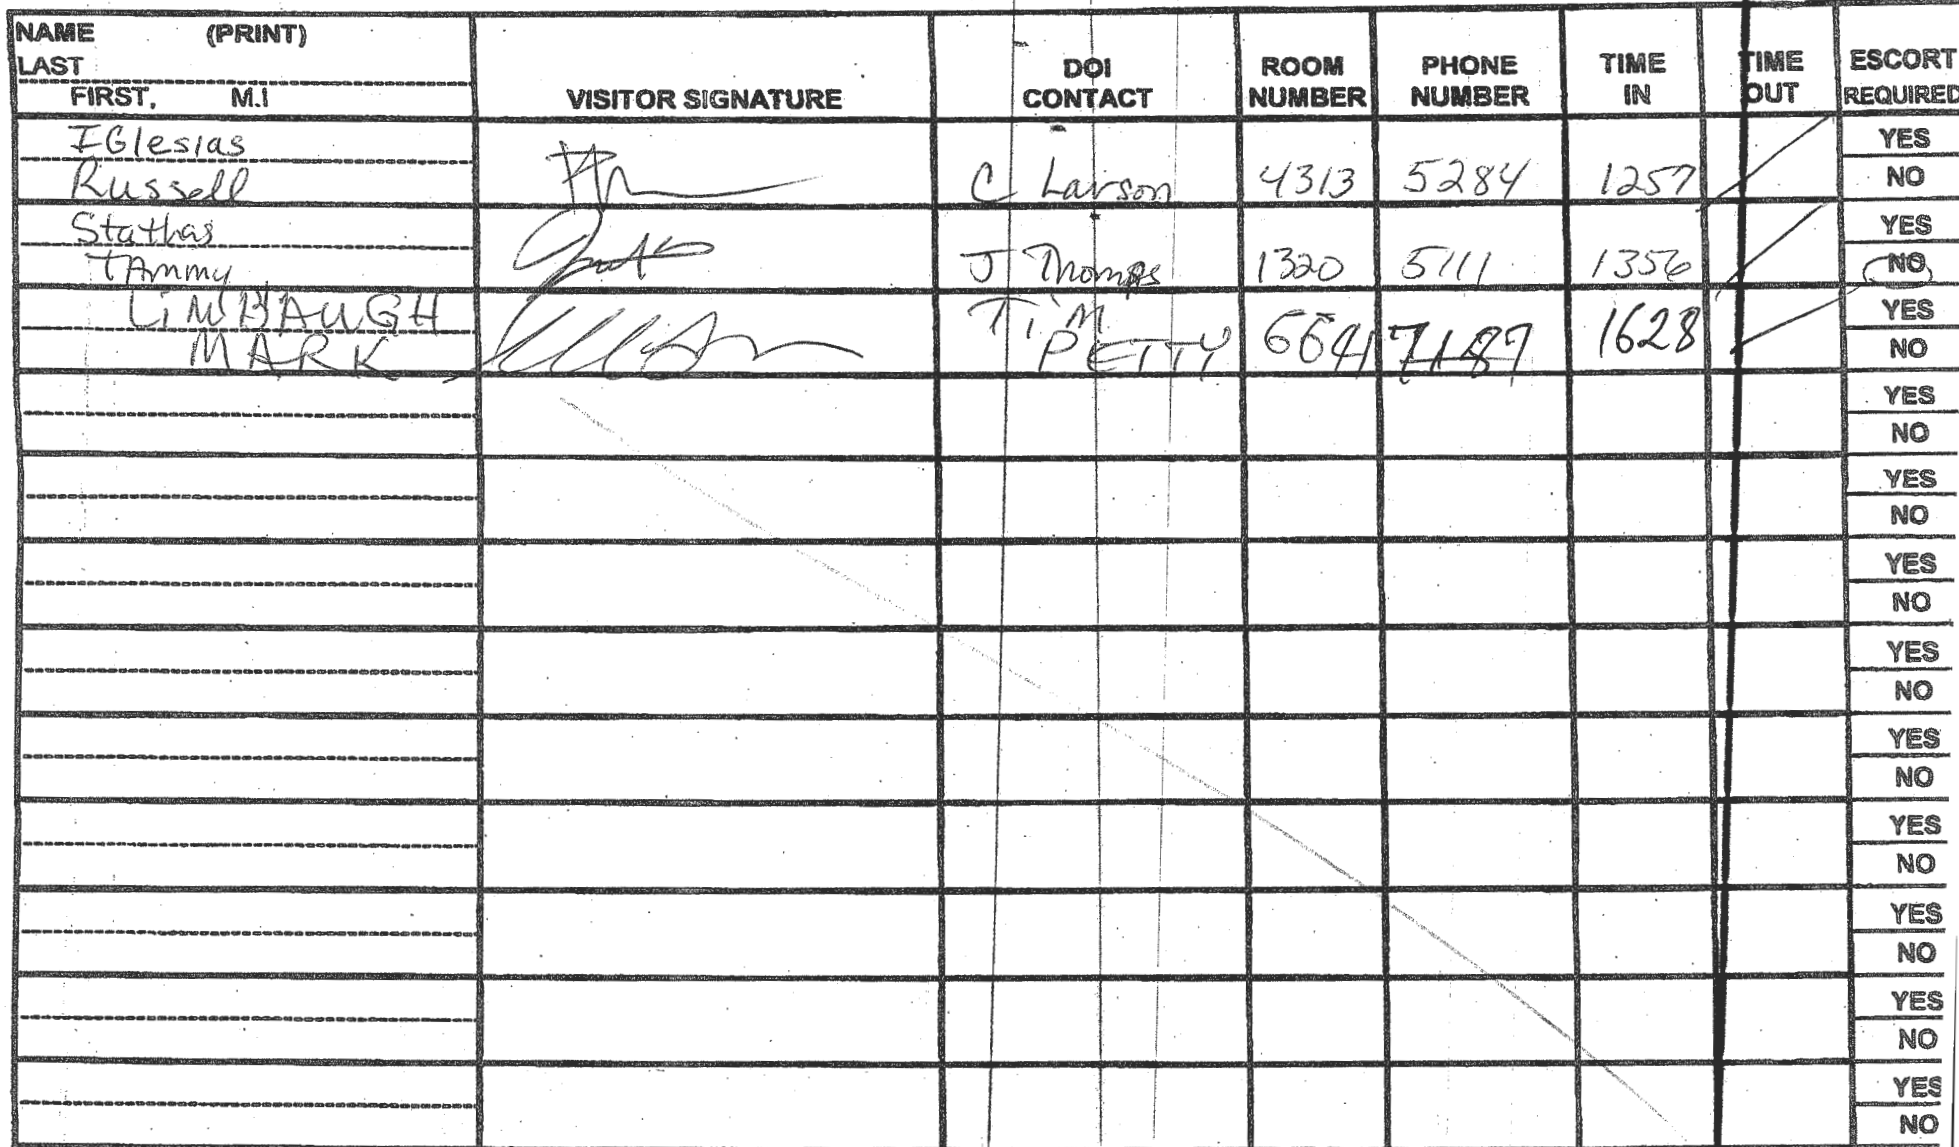 NAME (PRINT)
LAST
FIRST, M.I
VISITOR SIGNATURE
DOI
CONTACT
ROOM
NUMBER
PHONE
NUMBER
TIME
IN
TIME
OUT
ESCORT
REQUIRED
IGlesias
Russell
C Larson 4313 5284 1257
YES
NO
Stathas
TAmmy
J Thomps 1320 5111 1356
YES
NO
LiMBAUGH
MARK
TiM
PETTY 6641 7187 1628
YES
NO
YES
NO
YES
NO
YES
NO
YES
NO
YES
NO
YES
NO
YES
NO
YES
NO
YES
NO